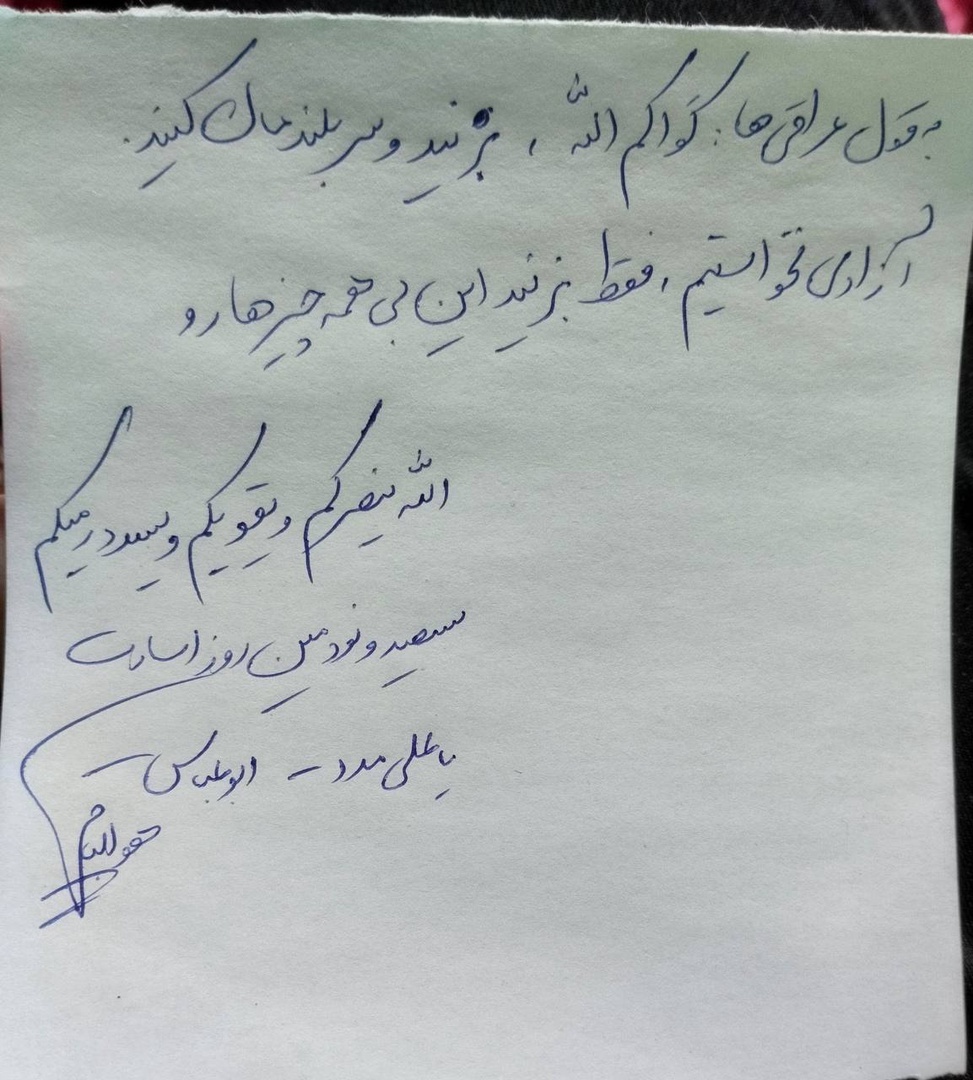 به قول عراقی‌ها: گواکم الله ، بزنید و سربلندمان کنید.
آزادی نخواستیم، فقط بزنید این بی همه چیزها رو
الله ینصرکم و یقویکم و یسدد رمیکم
سیصد و نودمین روز اسارت
یا علی مدد - ابوعباس